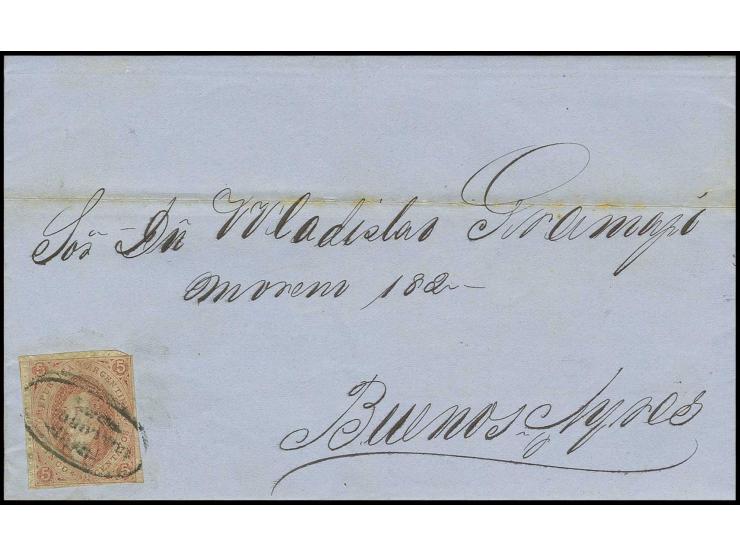 Sor̃ Dn̄ Wladislao Gramaji
Moreno 182—
Buenos Ayres
5 5
ARGENTINA
5 5